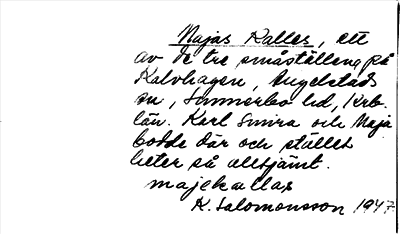 Majas Kalles, ett
av de tre småställena på
Kalvhagen, Angelstads
sn, Sunnerbo hd, Krb.
län. Karl Smira och Maja
bodde där och stället
heter så alltjämt.
majekallas
K. Salomonsson 1947.